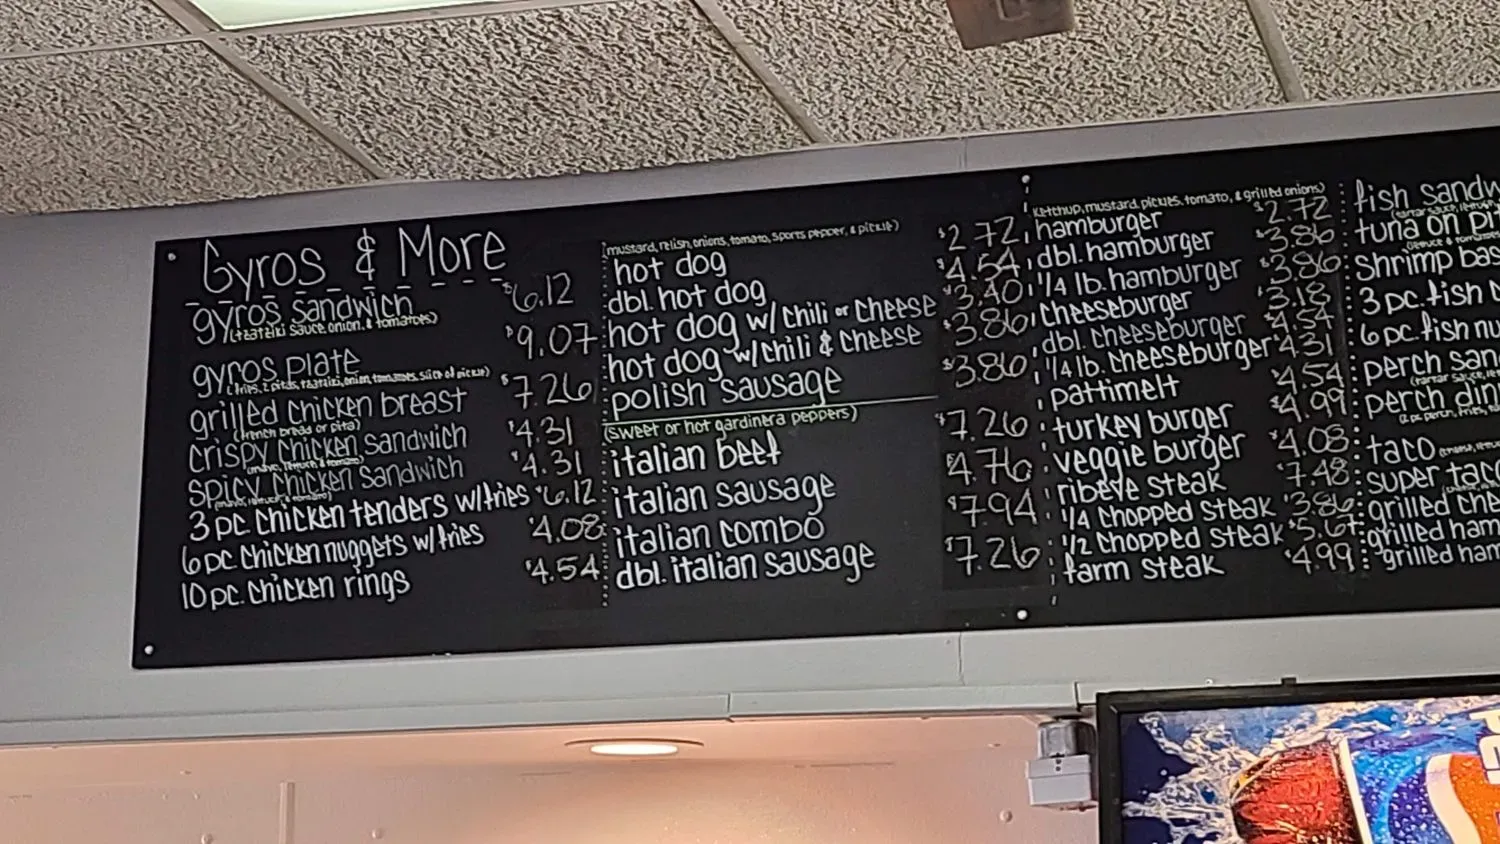 Gyros & More
gyros sandwich $6.12
(tzatziki sauce, onion, & tomatoes)
gyros plate $9.07
(fries, 2 pitas, tzatziki, onion, tomatoes, slice of pickle)
grilled chicken breast $7.26
(french bread or pita)
crispy chicken sandwich $4.31
(mayo, lettuce, & tomato)
spicy chicken sandwich $4.31
(mayo, lettuce, & tomato)
3 pc. chicken tenders w/fries $6.12
6 pc chicken nuggets w/fries $4.08
10 pc. chicken rings $4.54
(mustard, relish, onions, tomato, sports pepper, & pickle)
hot dog $2.72
dbl. hot dog $4.54
hot dog w/ chili or cheese $3.40
hot dog w/chili & cheese $3.86
polish sausage $3.86
(sweet or hot gardinera peppers)
italian beef $7.26
italian sausage $4.76
italian combo $7.94
dbl. italian sausage $7.26
(ketchup, mustard, pickles, tomato, & grilled onions)
hamburger $2.72
dbl. hamburger $3.86
1/4 lb. hamburger $3.86
cheeseburger $3.18
dbl. cheeseburger $4.54
1/4 lb. cheeseburger $4.31
pattimelt $4.54
turkey burger $4.99
veggie burger $4.08
ribeye steak $7.48
1/4 chopped steak $3.86
1/2 chopped steak $5.67
farm steak $4.99
fish sandw
(tartar sauce, lettuce
tuna on pit
(lettuce & tomatoes
shrimp bas
3 pc. fish
6 pc. fish nu
perch san
(tartar sauce,
perch din
(2 pc. perch, fries,
taco
super taco
grilled che
grilled ham
grilled ham